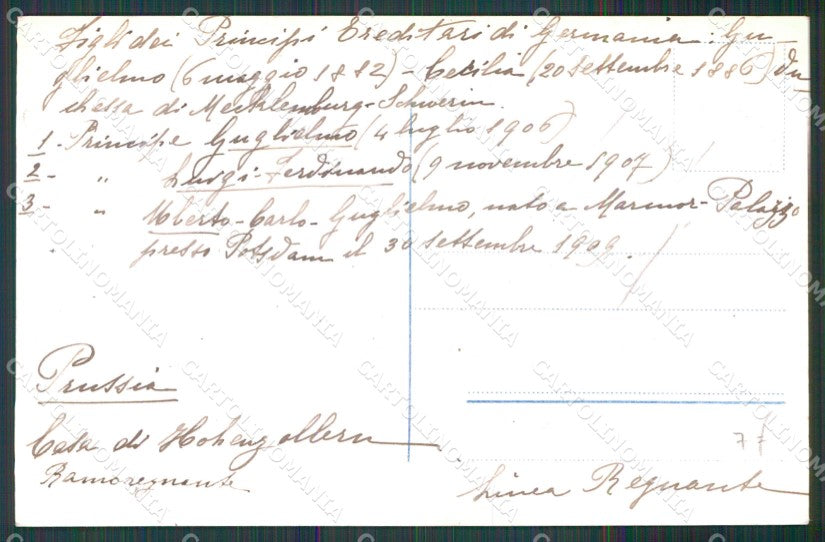 Figli dei Principi Ereditari di Germania: Gu-
glielmo (6 maggio 1882) - Cecilia (20 settembre 1886) Du-
chessa di Mecklemburg-Schwerin.
1. Principe Guglielmo (4 luglio 1906)
2. " Luigi-Ferdinando (9 novembre 1907)
3. " Uberto-Carlo-Guglielmo, nato a Marmor-Palazzo
presso Potsdam il 30 settembre 1909.
Prussia
Casa di Hohenzollern
Ramo regnante
Linea Regnante
77
CARTOLINOMANIA